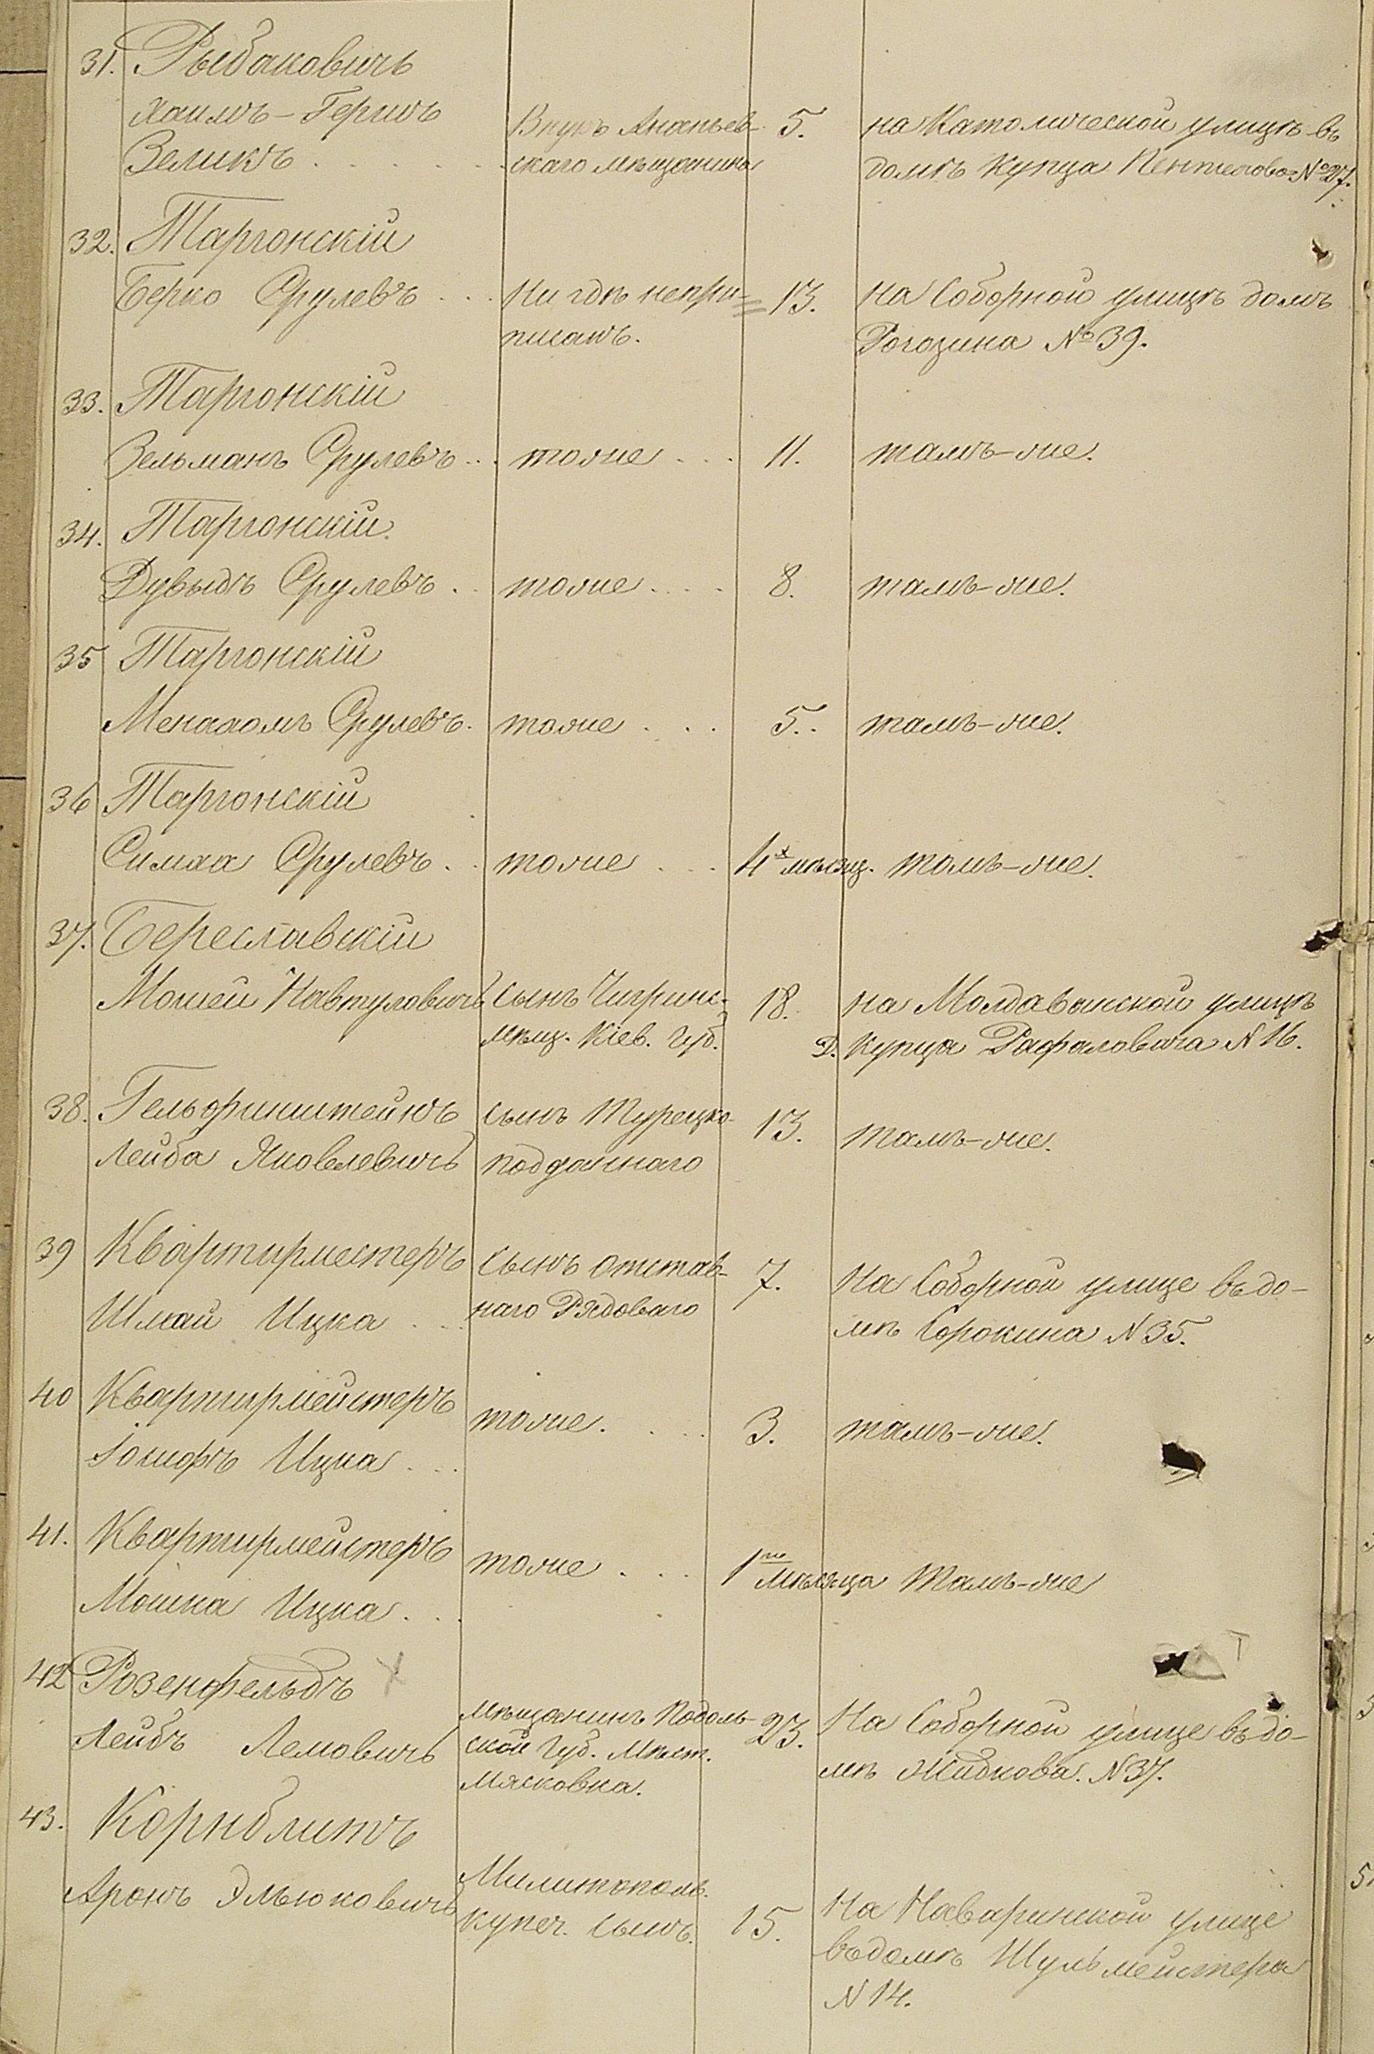 31. Рыбаковичъ
Хаимъ-Гершъ
Зеликъ . . . . . . . Внукъ Ананьев- 5. на Католической улицѣ въ
скаго мѣщанина домѣ Купца №27.
32. Таргонскій
Берко Срулевъ . . . Ни гдѣ непри- 13. на Соборной улицѣ домъ
писанъ. Рогозина №39.
33. Таргонскій
Зельманъ Срулевъ . . . тоже . . . 11. тамъ-же.
34. Таргонскій.
Дувыдъ Срулевъ . . тоже . . . . 8. тамъ-же.
35 Таргонскій
Менахомъ Срулевъ . тоже . . . 5. тамъ-же.
36 Таргонскій
Симха Срулевъ . . тоже . . . 4х мѣсяц. тамъ-же.
37. Береславскій
Мошей Навтуловичъ сынъ Чигринс. 18. на Молдаванской улицѣ
мѣщ. Кіев. Губ. Д. Купца Рафаловича N 16.
38. Гельфинштейнъ сынъ Турецко- 13. тамъ-же.
Лейба Яковлевичъ подданнаго
39 Квартирместеръ сынъ отстав- 7. На Соборной улице въ до-
Шмай Ицка . . . наго Рядоваго мѣ Сорокина N 35.
40 Квартирмейстеръ тоже. . . . 3. тамъ-же.
Іосифъ Ицка . . .
41. Квартирмейстеръ тоже . . . 1го мѣсяца Тамъ-же
Мошка Ицка . . .
42 Розенфельдъ
Лейбъ Лемовичъ мѣщанинъ Подоль- 23. На Соборной улице въ до-
ской Губ. Мѣст. мѣ Жидкова. N 37.
Мясковка.
43. Корнблитъ
Аронъ Эльюковичъ Милитополь. 15. На Наваринской улице
купеч. сынъ. въ домѣ Шульмейстера
N 14.